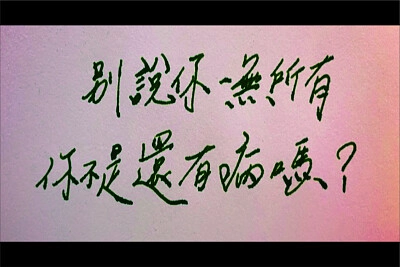 別說你一無所有
你不是還有病嗎？